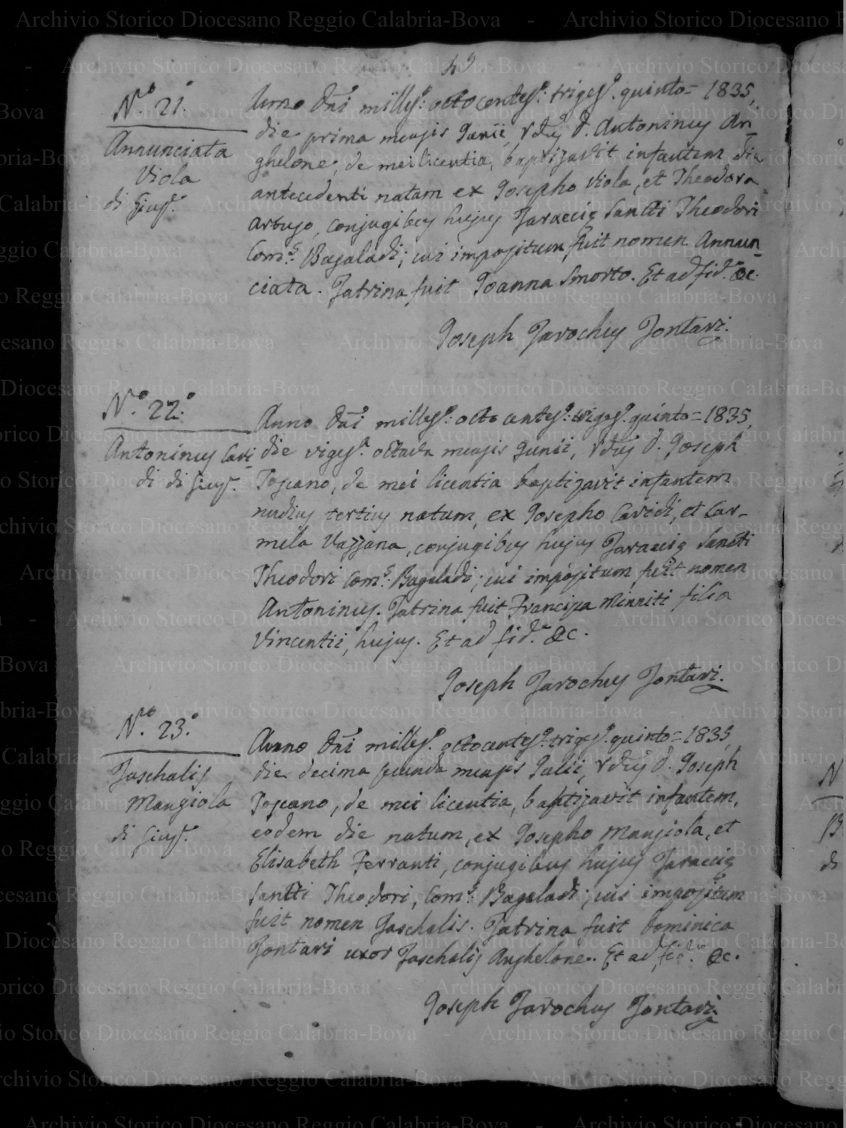 49
N.° 21.
Annunciata
Viola
di Gius.e
Anno Dni milles.° octocentes.° triges.° quinto = 1835,
die prima mensis Junii, Rdus D. Antoninus An-
ghelone, de mei licentia, baptizavit infantem die
antecedenti natam ex Josepho Viola, et Theodora
Artuso, conjugibus hujus Paraeciae Sancti Theodori
Com.s Bagaladi; cui impositum fuit nomen Annun-
ciata. Patrina fuit Joanna Smorto. Et ad fid.m &c.
Joseph Parochus Pontari.
N.° 22.
Antoninus Cari-
di di Gius.e
Anno Dni milles.° octocentes.° triges.° quinto = 1835,
die viges.a octava mensis Junii, Rdus D. Joseph
Toscano, de mei licentia baptizavit infantem
nudius tertius natum, ex Josepho Caridi, et Car-
mela Vazzana, conjugibus hujus Paraeciae Sancti
Theodori Com.s Bagaladi; cui impositum fuit nomen
Antoninus. Patrina fuit Francisca Minniti filia
Vincentii, hujus. Et ad fid.m &c.
Joseph Parochus Pontari.
N.° 23.
Paschalis
Mangiola
di Gius.e
Anno Dni milles.° octocentes.° triges.° quinto = 1835,
die decima secunda mensis Julii, Rdus D. Joseph
Toscano, de mei licentia, baptizavit infantem,
eodem die natum, ex Josepho Mangiola, et
Elisabeth Ferranti, conjugibus hujus Paraeciae
Sancti Theodori, Com.s Bagaladi; cui impositum
fuit nomen Paschalis. Patrina fuit Dominica
Pontari uxor Paschalis Anghelone. Et ad fid.m &c.
Joseph Parochus Pontari.
Archivio Storico Diocesano Reggio Calabria-Bova